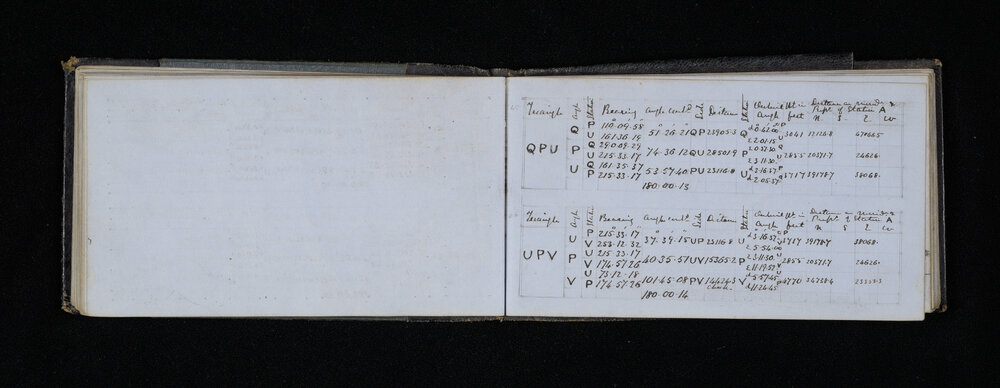 Triangle Angle Station Bearing Angle Cont.d Side Distance Station Vertical Angle Ht in feet Distance on merid & Perp.r of Station A
N. S. E W
Q P 110.09.58 51.26.21 QP 23905.3 Q 3041 12126.8 47066.5
U 161.36.19
QPU P Q 290.09.29 74.36.12 QU 28501.9 P 2855 20371.7 24626.
U 215.33.17
U Q 161.35.37 53.57.40 PU 23116.8 U 3717 39178.7 38068.
P 215.33.17
180.00.13
Triangle Angle Station Bearing Angle Cont.d Side Distance Station Vertical Angle Ht in feet Distance on merid & Perp.r of Station A
N S E W
U P 215.33.17 37.39.15 UP 23116.8 U 3717 39178.7 38068.
V 253.12.32
UPV P U 215.33.17 40.35.57 UV 15365.2 P 2855 20371.7 24626.
V 174.57.26
V U 73.12.18 101.45.08 PV 14424.3 V 5770 34738.4 23353.3
P 174.57.26
180.00.14